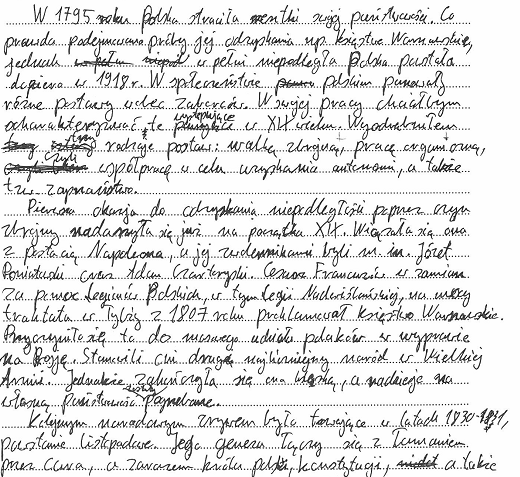 W 1795 roku Polska straciła resztki swojej państwowości. Co
prawda podejmowano próby jej odzyskania np. Księstwo Warszawskie,
jednak w pełni niepodległa Polska powstała
dopiero w 1918 r. W społeczeństwie polskim panowały
różne postawy wobec zaborców. W swojej pracy chciałbym
scharakteryzować te występujące w XIX wieku. Wyodrębniłem
trzy rodzaje postaw: walkę zbrojną, pracę organiczną,
czyli współpracę w celu uzyskania autonomii, a także
tzw. zaprzaństwo.
Pierwsza okazja do odzyskania niepodległości poprzez czyn
zbrojny nadarzyła się już na początku XIX. Wiązała się ona
z postacią Napoleona, a jej zwolennikami byli m. in. Józef
Poniatowski oraz Adam Czartoryski. Cesarz Francuzów w zamian
za pomoc Legionów Polskich, w tym Legii Nadwiślańskiej, na mocy
traktatu w Tylży z 1807 roku proklamował Księstwo Warszawskie.
Przyczyniło się to do masowego udziału polaków w wyprawie
na Rosję. Stanowili oni drugą najliczniejszy naród w Wielkiej
Armii. Jednakże zakończyła się ona klęską, a nadzieje na
własną państwowość zostały pogrzebane.
Kolejnym narodowym zrywem było trwające w latach 1830-1831,
powstanie listopadowe. Jego geneza łączy się z łamaniem
przez cara, a zarazem króla polski, konstytucji, a także